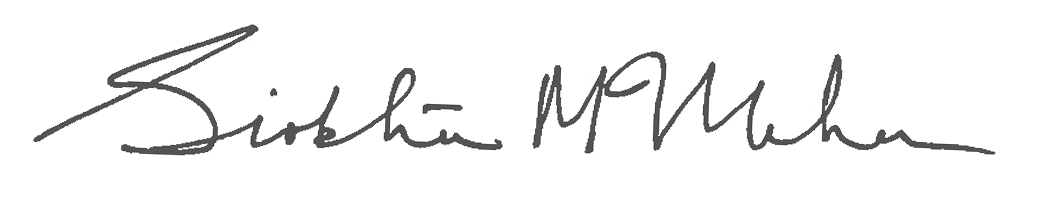 Siobhán McMahon